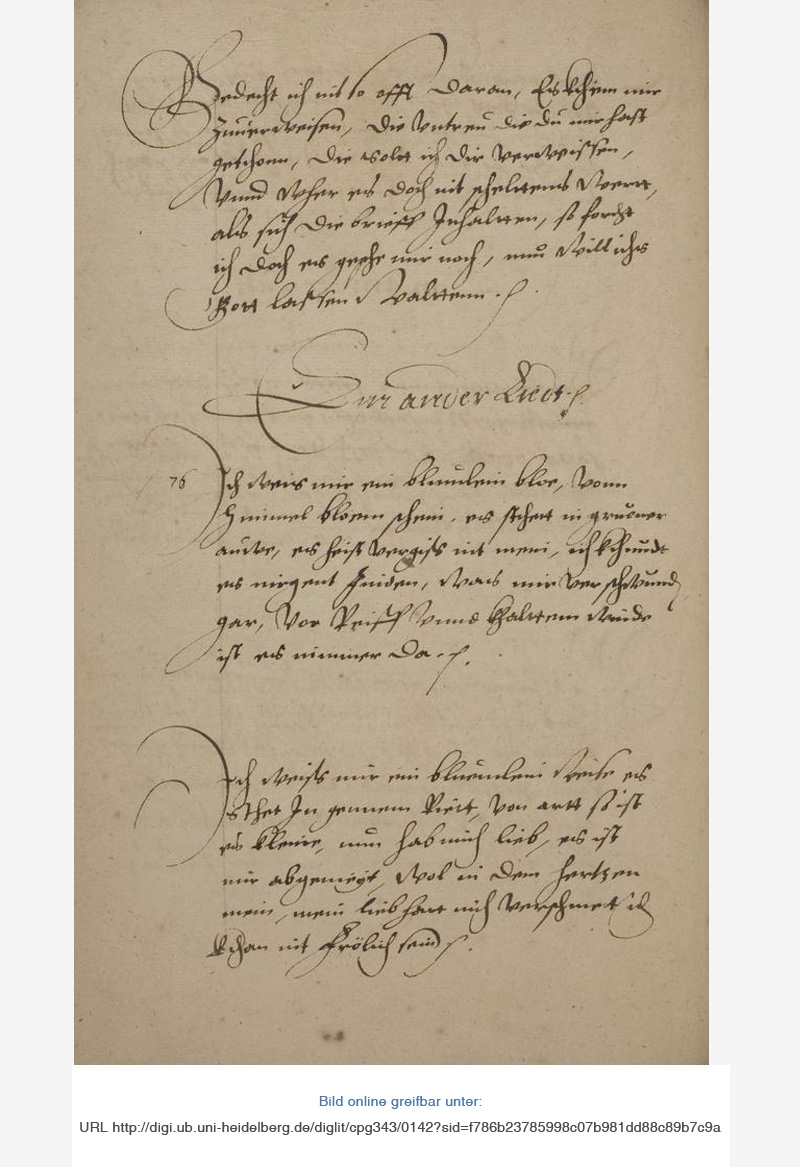 Gedecht ich nit so offt daran, Es khem mir
Zuuerweisen, die Untreu die du mir hast
gethonn, die wolt ich dir verweissen,
Vnnd wher es doch nit scheltens wertt,
als sich die brieff Inhaltten, so forcht
ich doch es geehe mir noch, nuu will ichs
Gott lassen Waltenn.
Ein ander Liedt
76 Ich weis mir ein bluulein bloe, vonn
Himmel bloem schein, es stehett in gruener
auwe, es heist vergiss nit mein, ich khundt
es nirgent finden, was mir verschwundt
gar, Vor Reiff vnnd khaltem winde
ist es nimmer da
Ich weiss mir ein bluemlein weise es
sthet In gennem Riett, von artt so ist
es kleine, nuu hab mich lieb, es ist
mir abgemeyt, wol in dem hertzen
mein, mein lieb hatt mich verschmet ich
khan nit frölich sein
Bild online greifbar unter:
URL http://digi.ub.uni-heidelberg.de/diglit/cpg343/0142?sid=f786b23785998c07b981dd88c89b7c9a